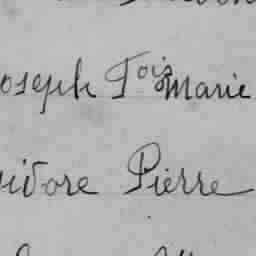 oseph Fois Marie
idore Pierre